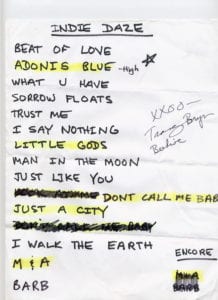 INDIE DAZE
BEAT OF LOVE
ADONIS BLUE -High
WHAT U HAVE
SORROW FLOATS
TRUST ME
I SAY NOTHING
LITTLE GODS
MAN IN THE MOON
JUST LIKE YOU
DONT CALL ME BAB
JUST A CITY
I WALK THE EARTH
M & A
BARB
XXOO-
Tracey
ENCORE
BARB